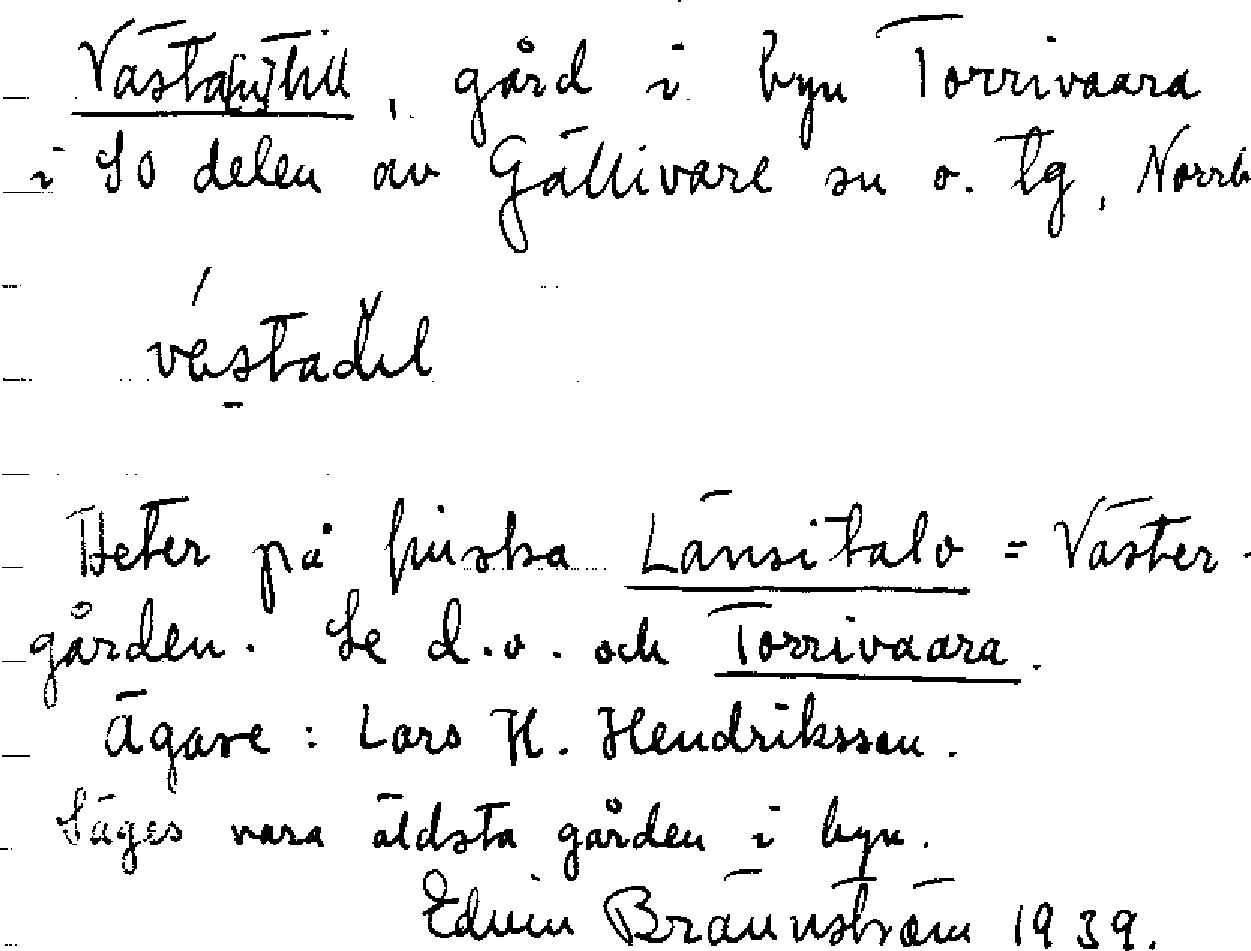 Västa[n]till, gård i byn Torrivaara
i SO delen av Gällivare sn o. tg, Norrb
Heter på finska Länsitalo = Väster-
gården. Se d.o. och Torrivaara.
Ägare: Lars H. Hendriksson.
Säges vara äldsta gården i byn.
Edvin Brännström 1939.